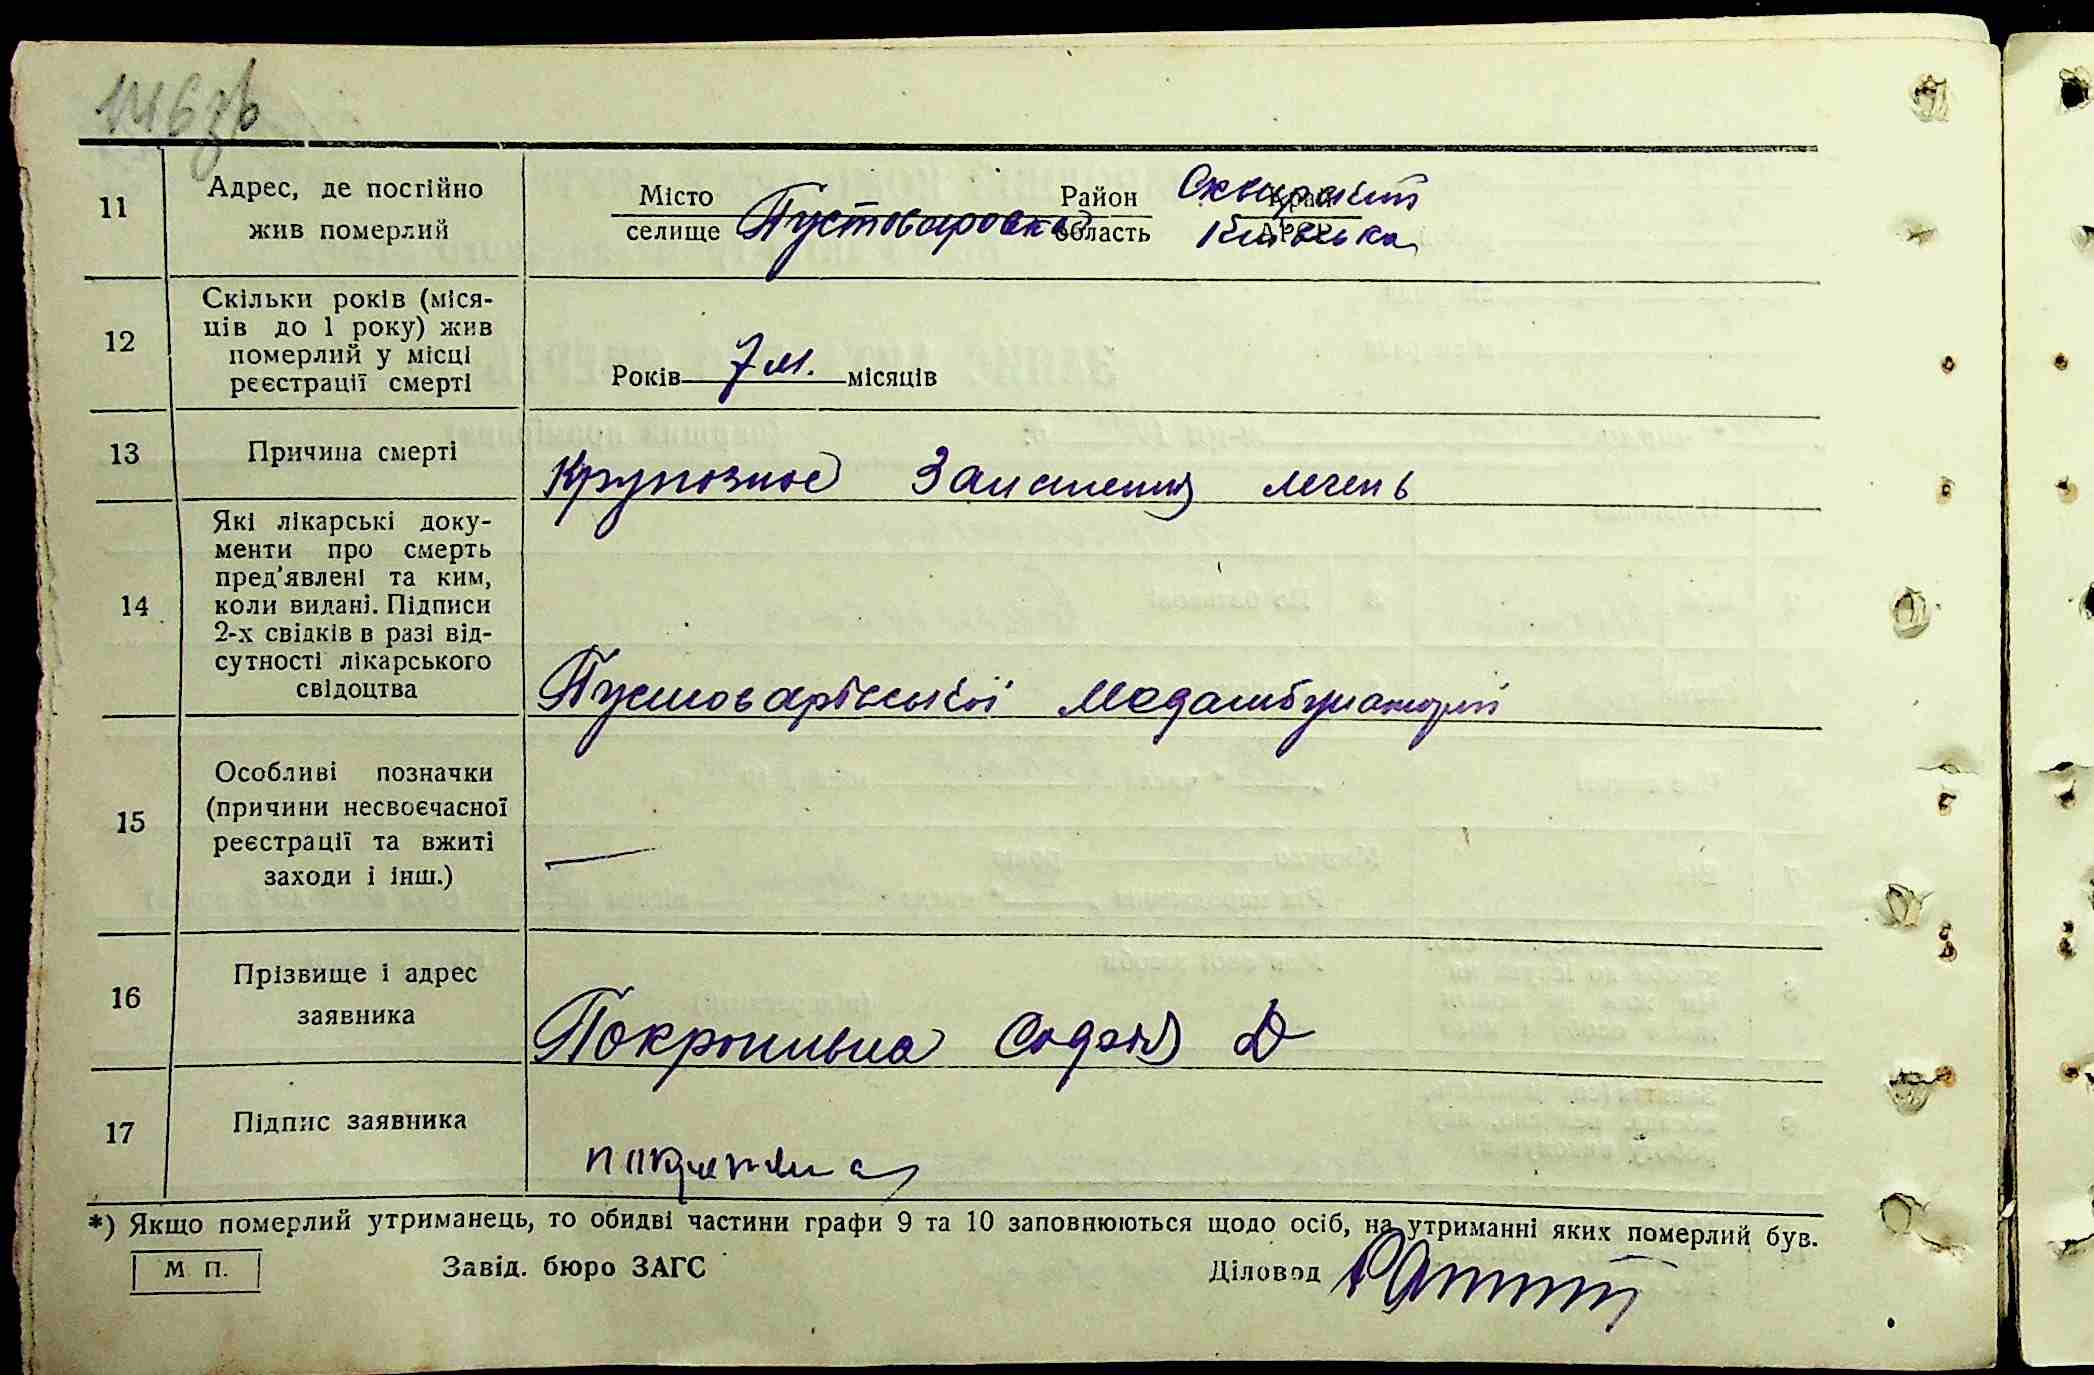 146зв
11
Адрес, де постійно
жив померлий
Місто
селище
Пустоваровка
Район
область
Сквирский
Київська
12
Скільки років (міся-
ців до 1 року) жив
померлий у місці
реєстрації смерті
Років 7 м. місяців
13
Причина смерті
Крупозное Запаления легень
14
Які лікарські доку-
менти про смерть
пред'явлені та ким,
коли видані. Підписи
2-х свідків в разі від-
сутності лікарського
свідоцтва
Пустоварівської Медамбулаторії
15
Особливі позначки
(причини несвоєчасної
реєстрації та вжиті
заходи і інш.)
—
16
Прізвище і адрес
заявника
Покропивна Софія Д
17
Підпис заявника
*) Якщо померлий утриманець, то обидві частини графи 9 та 10 заповнюються щодо осіб, на утриманні яких померлий був.
М П.
Завід. бюро ЗАГС
Діловод